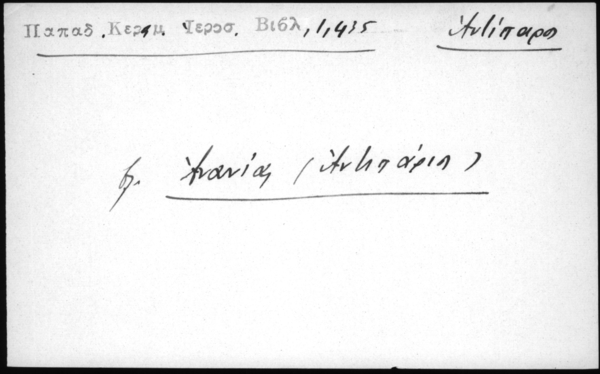 Παπαδ. Κεραμ. Ἱεροσ. Βιβλ, 1, 435 Ἀντίπαρος
βλ. Ἀνανίας (Ἀντιπάριος)